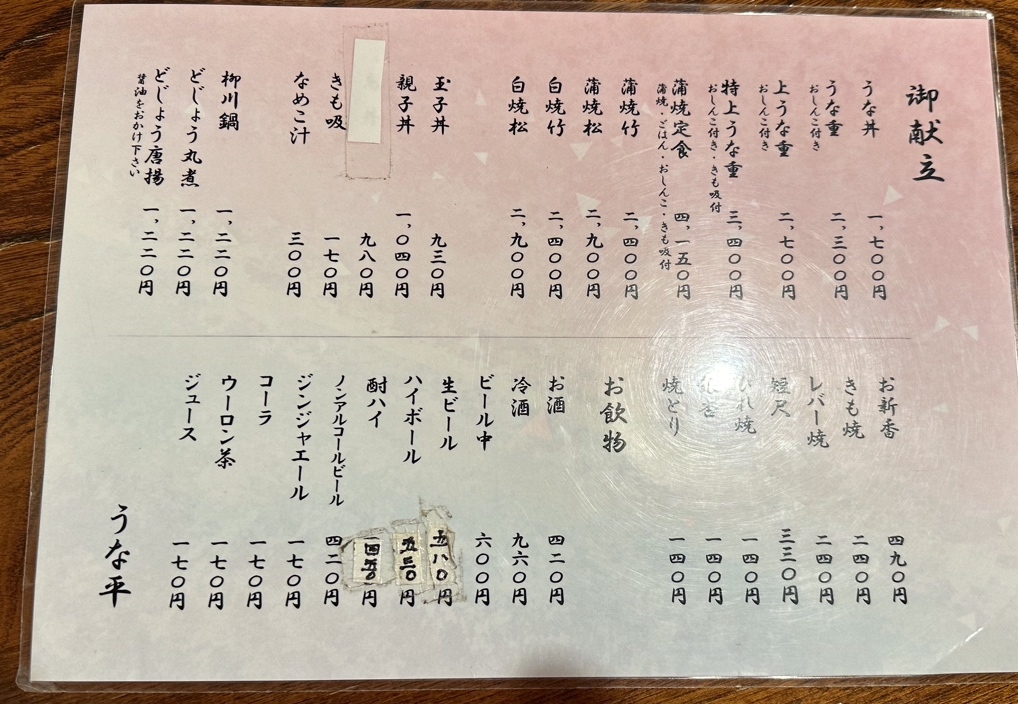 御献立
うな丼 一,七〇〇円
うな重 二,三〇〇円
おしんこ付き
上うな重 二,七〇〇円
おしんこ付き
特上うな重 三,四〇〇円
おしんこ付き・きも吸付
蒲焼定食 四,一五〇円
蒲焼・ごはん・おしんこ・きも吸付
蒲焼竹 二,四〇〇円
蒲焼松 二,九〇〇円
白焼竹 二,四〇〇円
白焼松 二,九〇〇円
玉子丼 九三〇円
親子丼 一,〇四〇円
九八〇円
きも吸 一七〇円
なめこ汁 三〇〇円
柳川鍋 一,二二〇円
どじょう丸煮 一,二二〇円
どじょう唐揚 一,二二〇円
醤油をおかけ下さい
お新香 四九〇円
きも焼 二四〇円
レバー焼 二四〇円
短尺 三三〇円
ひれ焼 一四〇円
一四〇円
焼とり 一四〇円
お飲物
お酒 四二〇円
冷酒 九六〇円
ビール中 六〇〇円
生ビール 五八〇円
ハイボール 五三〇円
酎ハイ 四五〇円
ノンアルコールビール 四二〇円
ジンジャエール 一七〇円
コーラ 一七〇円
ウーロン茶 一七〇円
ジュース 一七〇円
うな平